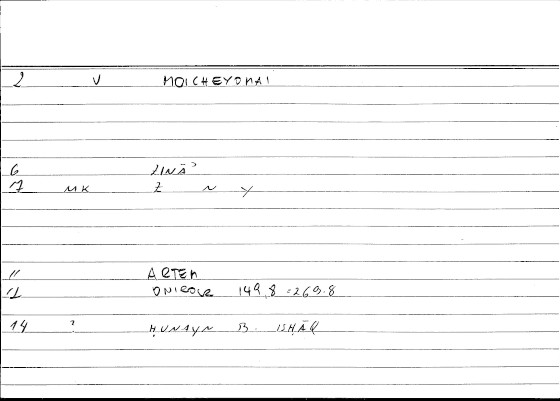 2 V MOICHEYOMAI
6 ZINĀʾ
7 MK Z N Y
11 ARTEM
11 ONIROCR 149,8 = 269.8
14 ? ḤUNAYN B. ISḤĀQ